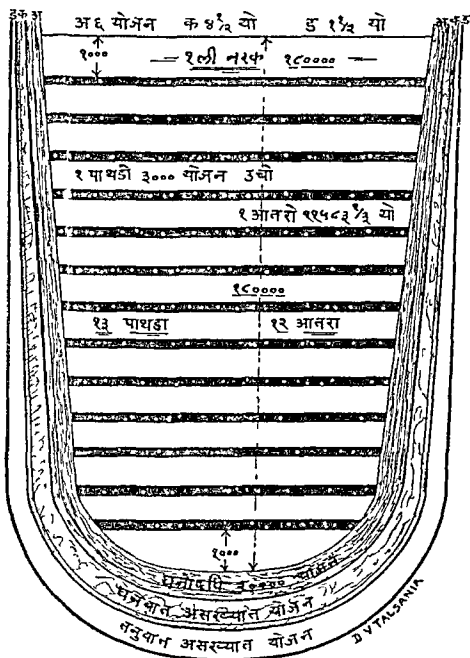 ड क अ
अ ६ योजन क ४१/२ यो ड ११/२ यो
अ क ड
१०००
१ली नरक १८००००
१ पाथडो ३००० योजन उंचो
१ आतरो ११५८३१/३ यो
१८००००
१३ पाथडा १२ आतरा
१०००
घनोदधि २०००० योजन
घनवात असख्यात योजन
तनुवात असख्यात योजन
D V TALSANIA